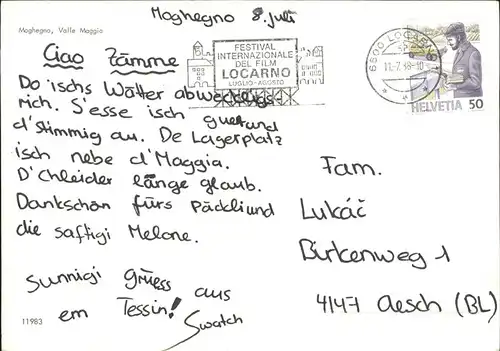 Moghegno 8. Juli
Moghegno, Valle Maggia
Ciao Zämme
FESTIVAL
INTERNAZIONALE
DEL FILM
LOCARNO
LUGLIO-AGOSTO
6600 LOCARNO
11.-7.89-10
HELVETIA 50
Do ischs Wätter abwechslungs-
rich. S'esse isch guet und
d'Stimmig au. De Lagerplatz
isch nebe d'Maggia.
D'Chleider länge glaub.
Dankschön fürs Päckli und
die saftigi Melone.
Sunnigi grüess aus
em Tessin!
Swatch
Fam.
Lukáč
Birkenweg 1
4147 Aesch (BL)
11983